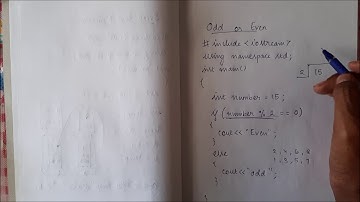 Odd or Even
# include <iostream>
using namespace std;
int main()
2 15
{
int number = 15;
if (number % 2 == 0)
{
cout<<"Even";
}
else 2, 4, 6, 8
1, 3, 5, 7
{
cout<<"odd";
}
}